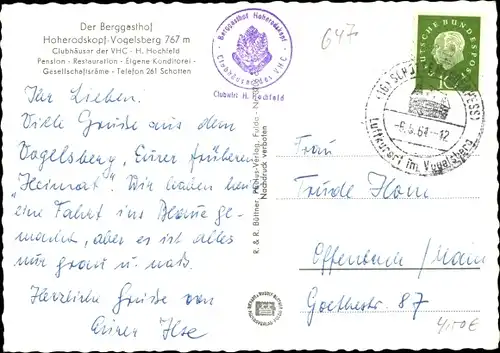 Der Berggasthof
Hoherodskopf-Vogelsberg 767 m
Clubhäuser der VHC - H. Hochfeld
Pension - Restauration - Eigene Konditorei -
Gesellschaftsräme - Telefon 261 Schotten
Berggasthof Hoherodskopf
Clubhäuser des VHC
Clubwirt H. Hochfeld
647
DEUTSCHE BUNDESPOST
10
-6.6.61-12
Luftkurort im Vogelsberg
Ihr Lieben.
Viele Grüße aus dem
Vogelsberg, Eurer früheren
"Heimat". Wir haben heute
eine Fahrt ins Blaue ge-
macht, aber es ist alles
nur grau u. naß.
Herzliche Grüße von
Eurer Ilse
R. & R. Büttner, Verlag, Fulda
Nachdruck verboten
Frau
Trude Hom
Offenbach / Main
Goethestr. 87
4,50 €